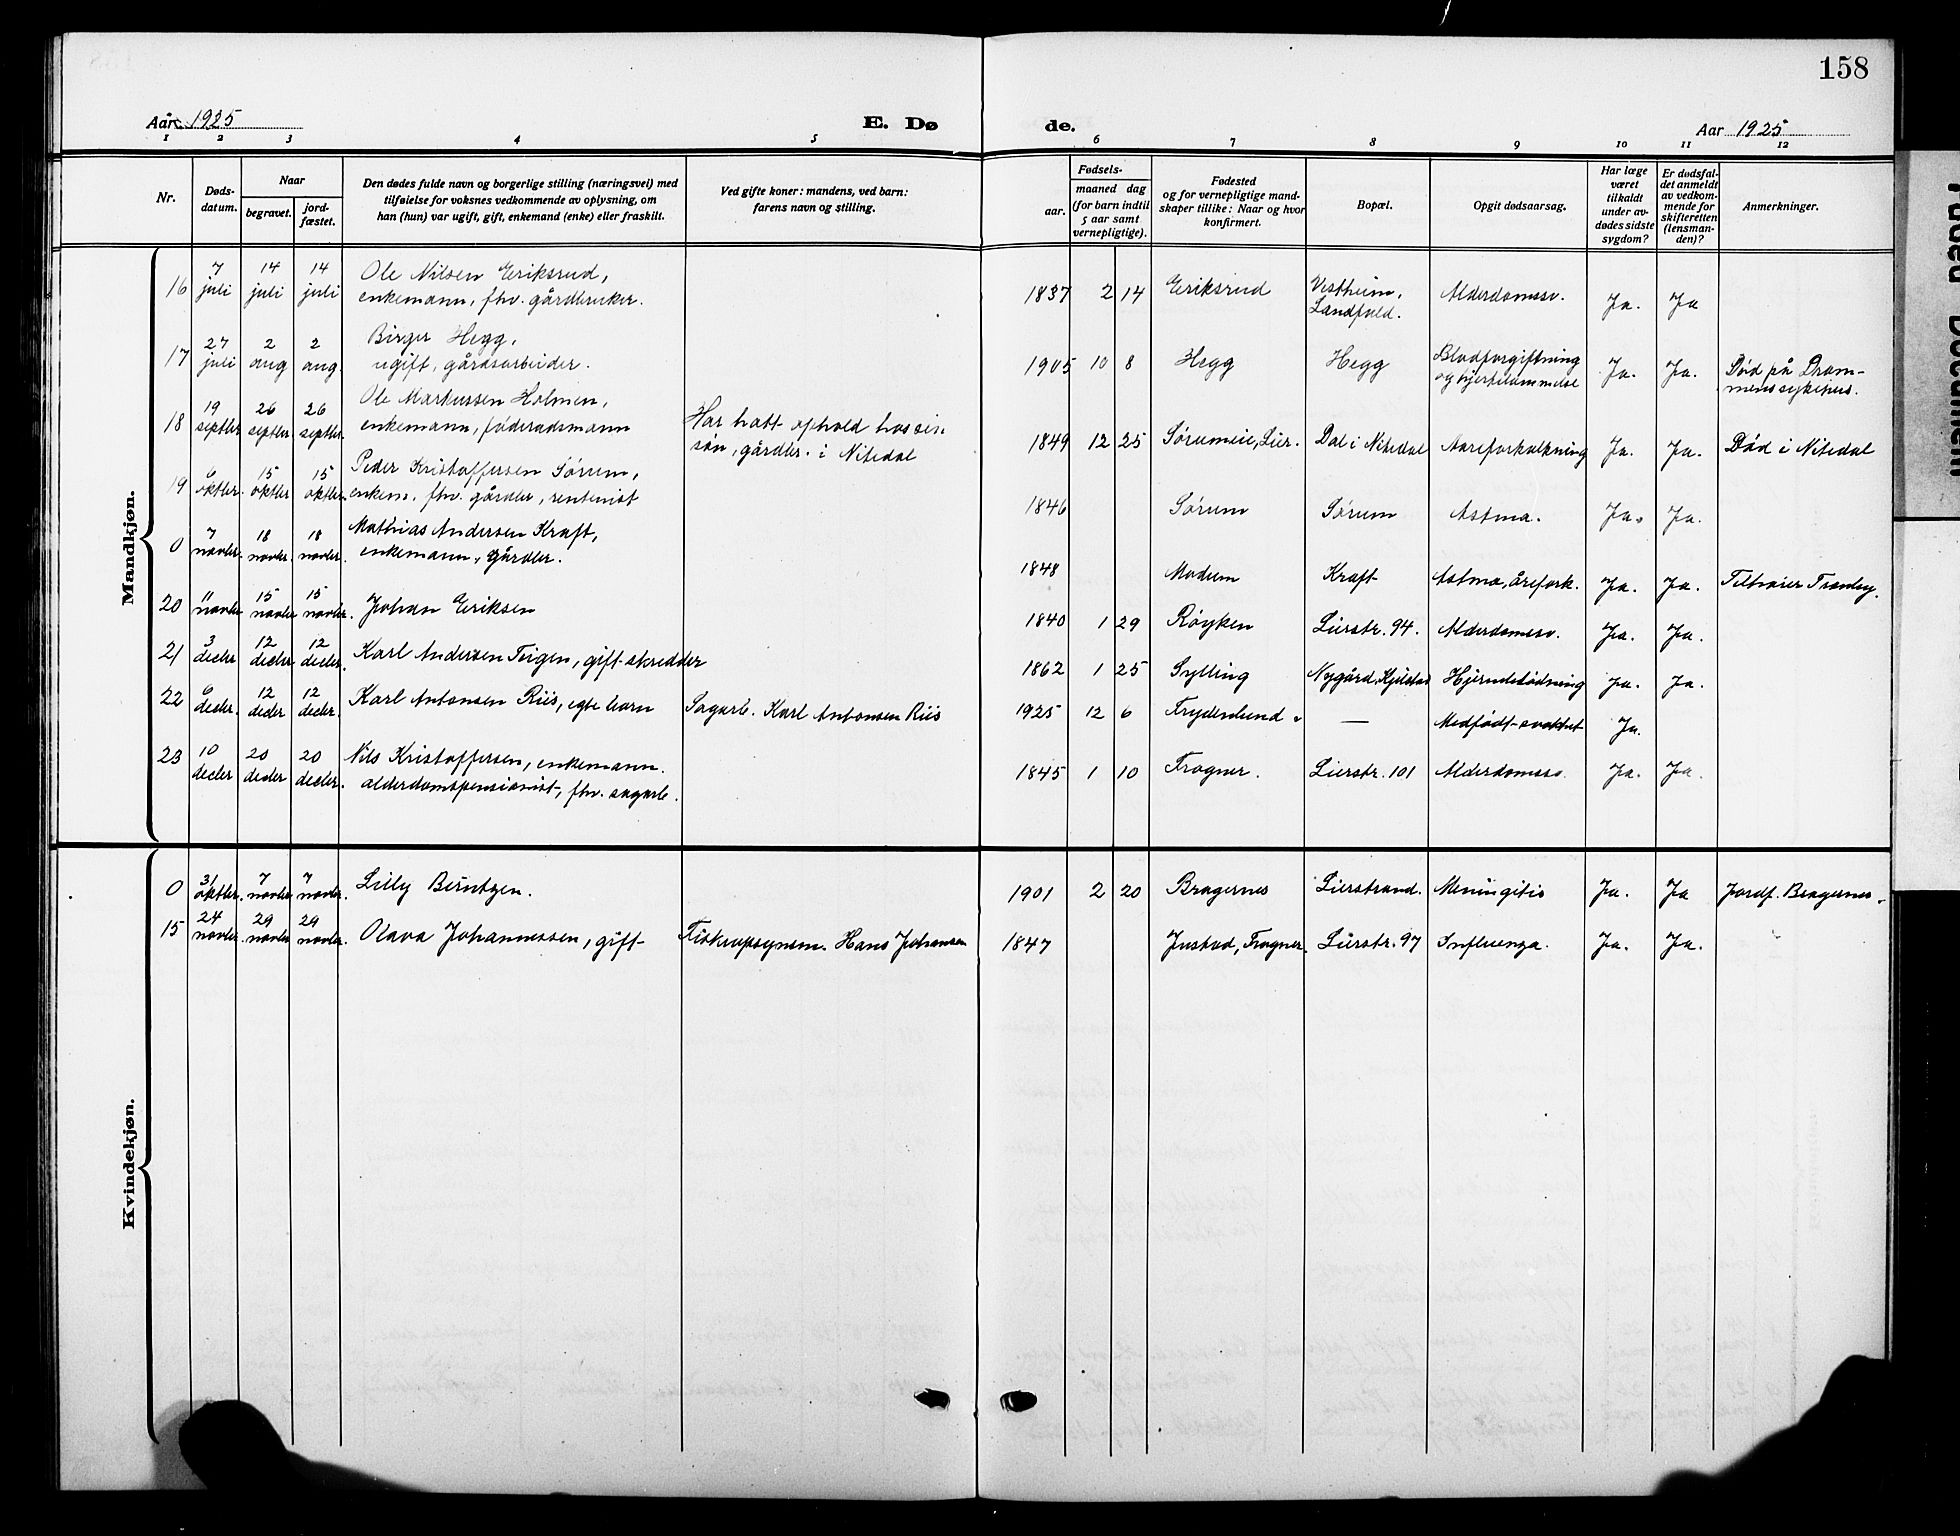 158
Aar 1925
E. Dø
de.
Aar 1925
1 2 3 4 5 6 7 8 9 10 11 12
Nr.
Døds-
datum.
Naar
begravet.
jord-
fæstet.
Den dødes fulde navn og borgerlige stilling (næringsvei) med
tilføielse for voksnes vedkommende av oplysning, om
han (hun) var ugift, gift, enkemand (enke) eller fraskilt.
Ved gifte koner: mandens, ved barn:
farens navn og stilling.
Fødsels-
aar.
maaned dag
(for barn indtil
5 aar samt
vernepligtige).
Fødested
og for vernepligtige mand-
skaper tillike: Naar og hvor
konfirmert.
Bopæl.
Opgit dødsaarsag.
Har læge
været
tilkaldt
under av-
dødes sidste
sygdom?
Er dødsfal-
det anmeldt
av vedkom-
mende for
skifteretten
(lensman-
den)?
Anmerkninger.
Mandkjøn.
16 7 juli 14 juli 14 juli Ole Nilsen Eriksrud,
enkemann, fhv. gårdbruker.
1837 2 14 Eriksrud Vestheim,
Landfald. Alderdomssv. Ja. Ja
17 27 juli 2 aug 2 aug. Birger Hegg,
ugift, gårdsarbeider.
1905 10 8 Hegg Hegg Blodforgiftning
og hjertelammelse Ja. Ja. Død på Dram-
menssykehus.
18 19 septbr. 26 septbr. 26 septbr. Ole Markussen Holmen,
enkemann, føderadsmann
Har hatt ophold hos sin
søn, gårdbr. i Nitedal
1849 12 25 Sørumeie, Lier. Dal i Nitedal Aareforkalkning Ja. Ja. Død i Nitedal
19 6 oktbr. 15 oktbr 15 oktbr. Peder Kristoffersen Sørum,
enkem. fhv. gårdbr, rentenist
1846 Sørum Sørum Astma. Ja. Ja.
0 7 novbr. 18 novbr. 18 novbr. Mathias Andersen Kraft,
enkemann, Gårdbr.
1848 Modum Kraft Astma, årefork. Ja. Ja. Tilhører Tranby.
20 11 novbr 15 novbr 15 novbr. Johan Eriksen
1840 1 29 Røyken Lierstr. 94. Alderdomssv. Ja. Ja.
21 3 decbr 12 decbr 12 decbr. Karl Andersen Teigen, gift skredder
1862 1 25 Sylling Nygård, Kjelstad Hjernebløtning Ja. Ja.
22 6 decbr. 12 decbr 12 decbr. Karl Antonsen Riis, egte barn Sagarb. Karl Antonsen Riis
1925 12 6 Frydenlund — Medfødt svakhet Ja.
23 10 decbr 20 decbr 20 decbr. Nils Kristoffersen, enkemann.
alderdomspensionist, fhv. sagarb.
1845 1 10 Frogner. Lierstr. 101 Alderdomssv. Ja. Ja.
Kvindekjøn.
0 31 oktbr. 7 novbr 7 novbr. Lilly Berntzen.
1901 2 20 Bragernes Lierstrand. Meningitis Ja. Ja Jordf. Bragernes.
15 24 novbr. 29 novbr 29 novbr. Olava Johannessen, gift Fiskeropsynsm. Hans Johansen
1847 Justad, Frogner. Lierstr. 97 Influenza. Ja. Ja.